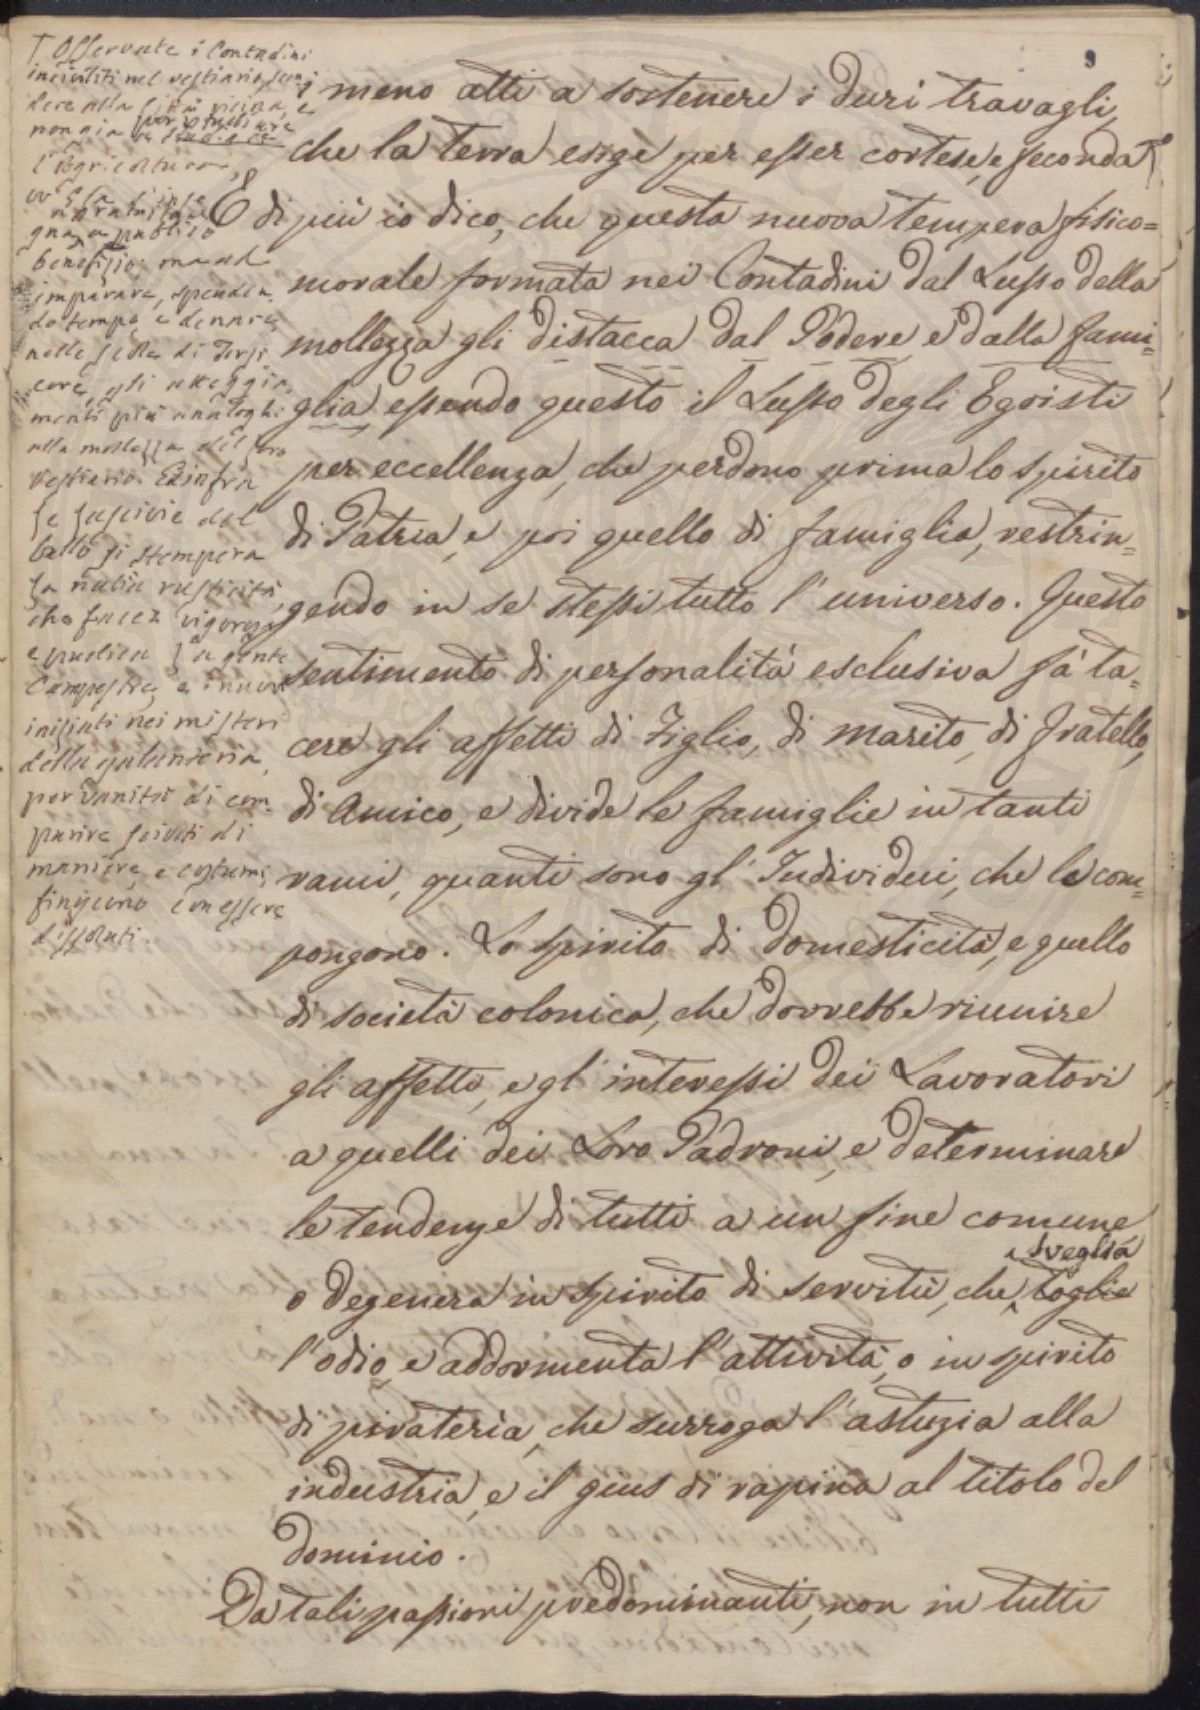 9
T Osservate i Contadini
inciviliti nel vestiario, scen
dere alla Città vicina, e
non già per istudiare
l'Agricoltura,
gna a publico
benefizio: ma ad
imparare, spenden
do tempo, e denaro,
nelle scole di Tersi
core, gli atteggia
menti più analoghi
alla mollezza del loro
vestiario. Ed infra
le lascivie del
ballo si stempera
la natia rusticità,
che facea vigorosa
e pudica la gente
Campestre, e i nuovi
iniziati nei misteri
della galanteria,
per vanità di com
parire sciolti di
maniere, e costumi,
finiscono con essere
dissoluti.
i meno atti a sostenere i duri travagli,
che la terra esige per esser cortese, e feconda T
E di più io dico, che questa nuova tempera fisico=
morale formata nei Contadini dal Lusso della
mollezza gli distacca dal Podere, e dalla fami=
glia, essendo questo il Lusso degli Egoisti
per eccellenza, che perdono prima lo spirito
di Patria, e poi quello di famiglia, restrin=
gendo in se stessi tutto l'universo. Questo
sentimento di personalità esclusiva fà ta=
cere gli affetti di Figlio, di marito, di fratello,
di Amico, e divide le famiglie in tanti
rami, quanti sono gl'Individui, che le com=
pongono. Lo spirito di domesticità, e quello
di società colonica, che dovrebbe riunire
gli affetti, e gl'interessi dei Lavoratori
a quelli dei Loro Padroni, e determinare
le tendenze di tutti a un fine comune
sveglia
o degenera in spirito di servitù, che toglie
l'odio, e addormenta l'attività, o in spirito
di pirateria, che surroga l'astuzia alla
industria, e il gius di rapina al titolo del
dominio.
Da tali passioni predominanti, non in tutti